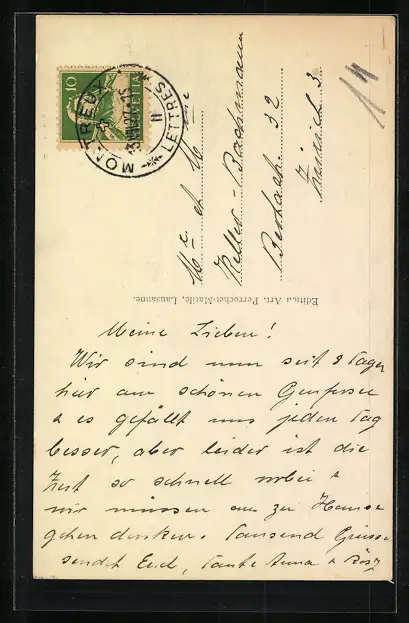 10
HELVETIA
MONTREUX
LETTRES
II
Mr et Mme
Keller-Bachmann
32
Zürich 3
Edition Art. Perrochet-Matile, Lausanne.
Meine Lieben!
Wir sind nun seit 8 Tagen
hier am schönen Genfersee
& es gefällt uns jeden Tag
besser, aber leider ist die
Zeit so schnell vorbei &
wir müssen an zu Hause
gehen denken. Tausend Grüsse
sendet Euch, Tante Anna &